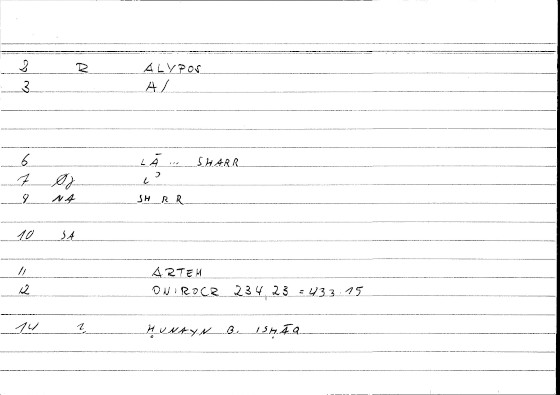 2 R ALYPOS
3 A/
6 LĀ ... SHARR
7 Øj lɔ
9 NA SHRR
10 SA
11 ARTEM
12 ONIROCR 234,23 = 433.15
14 2 ḤUNAYN B. ISḤĀQ